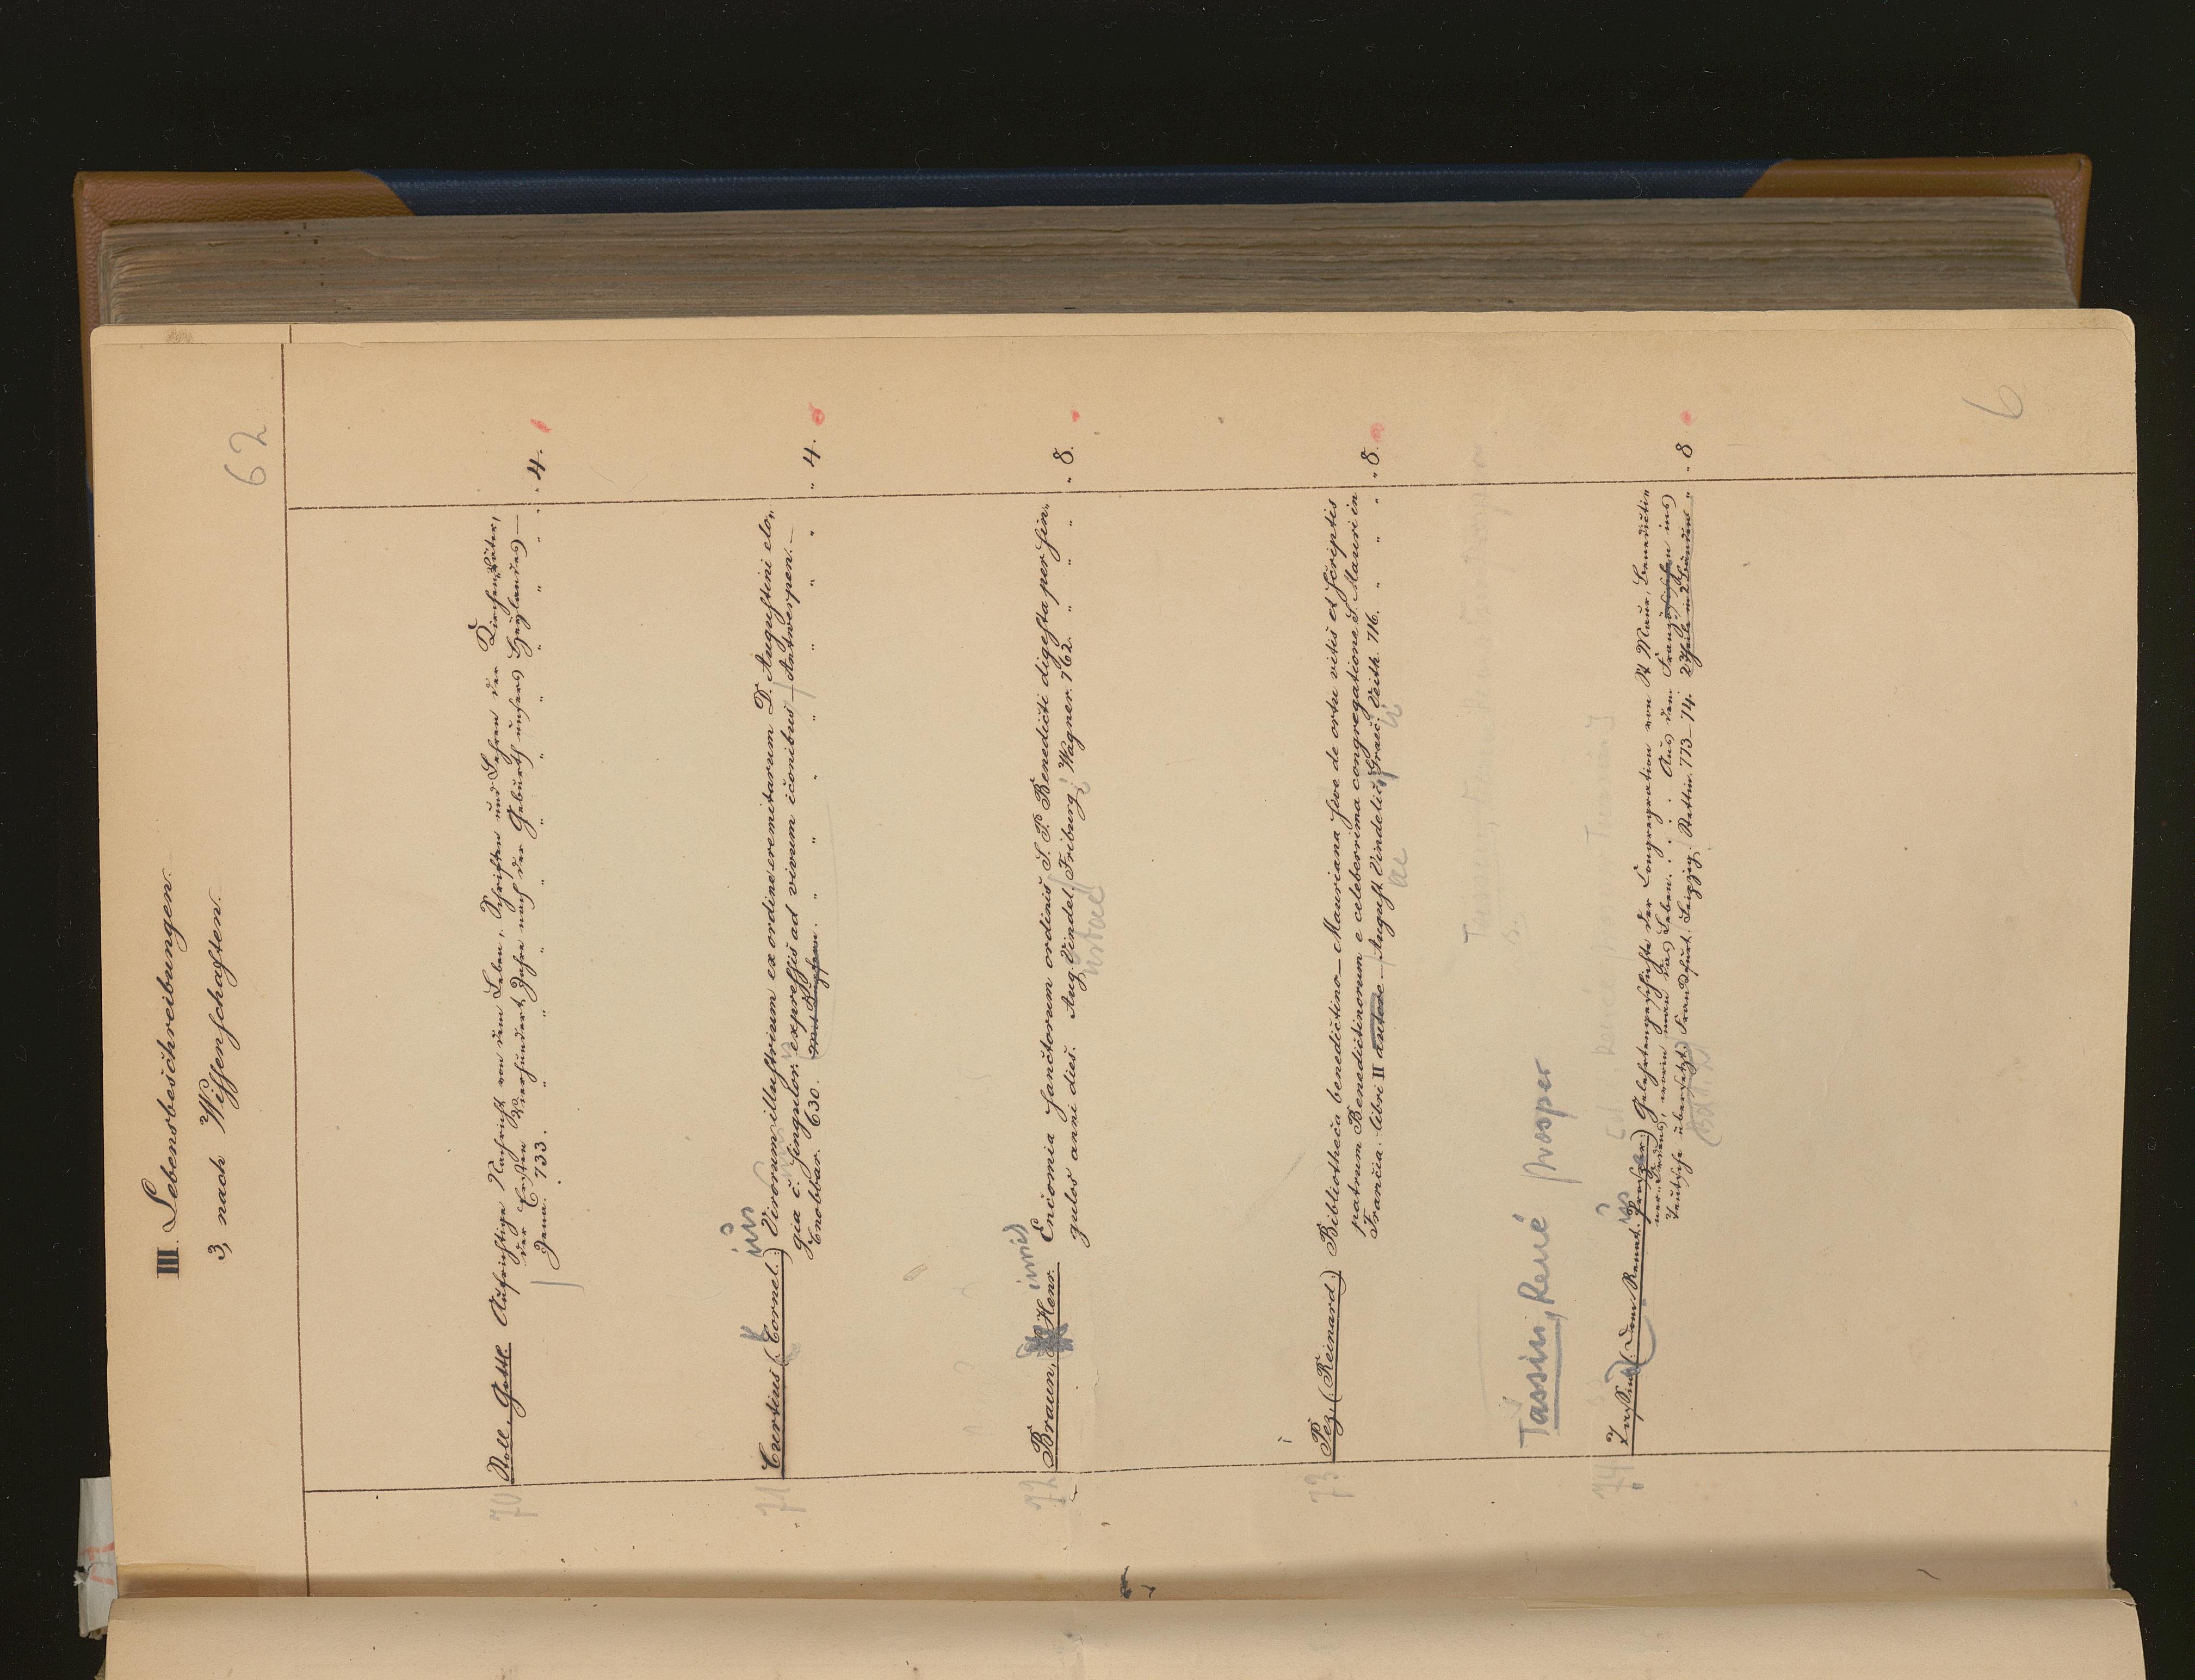 III. Lebensbeschreibungen.
3, nach Wissenschaften.
62
70 Stoll, Gottl. Aufrichtige Nachricht von dem Leben, Schriften und Lehren der Kirchen-Väter,
der Ersten Vierhundert Jahre nach der Geburth unsers Heylandes —
Jena. 733. " " " " " " " " " " 4.
71 Curtius (Cornel.) ius Virorum illustrium ex ordine eremitarum D. Augustini elo„
gia c. singulor. expressis ad vivum iconibus — Antwerpen. —
Cnobbar. 630. mit Kupfern. " " " " " " " " 4.
72 Braun, Henr. inrici Encomia sanctorum ordinis S. P. Benedicti digesta per sin„
gulos anni dies. Aug. Vindel. Friburg. Wagner. 762. " " " " 8.
73 Pez, (Reinard.) Bibliotheca benedictino-Mauriana sive de ortu vitis et scriptis
patrum Benedictinorum e celeberrima congregatione S. Mauri in
Francia. libri II autore — August Vindelic. Graec. Veith. 716. " " " 8.
ae
Tassin, René Prosper
74 Tassin (Dom Renat. Prosper.) Gelehrtengeschichte der Congregation von St Maur, Benedictin
ner Ordens, worin man das Leben. . . . Aus dem Französischen ins
Teutsche übersetzt. Frankfurt. Leipzig. Stettin. 773–74. 2 Theile in 2 Bänden " " 8
6